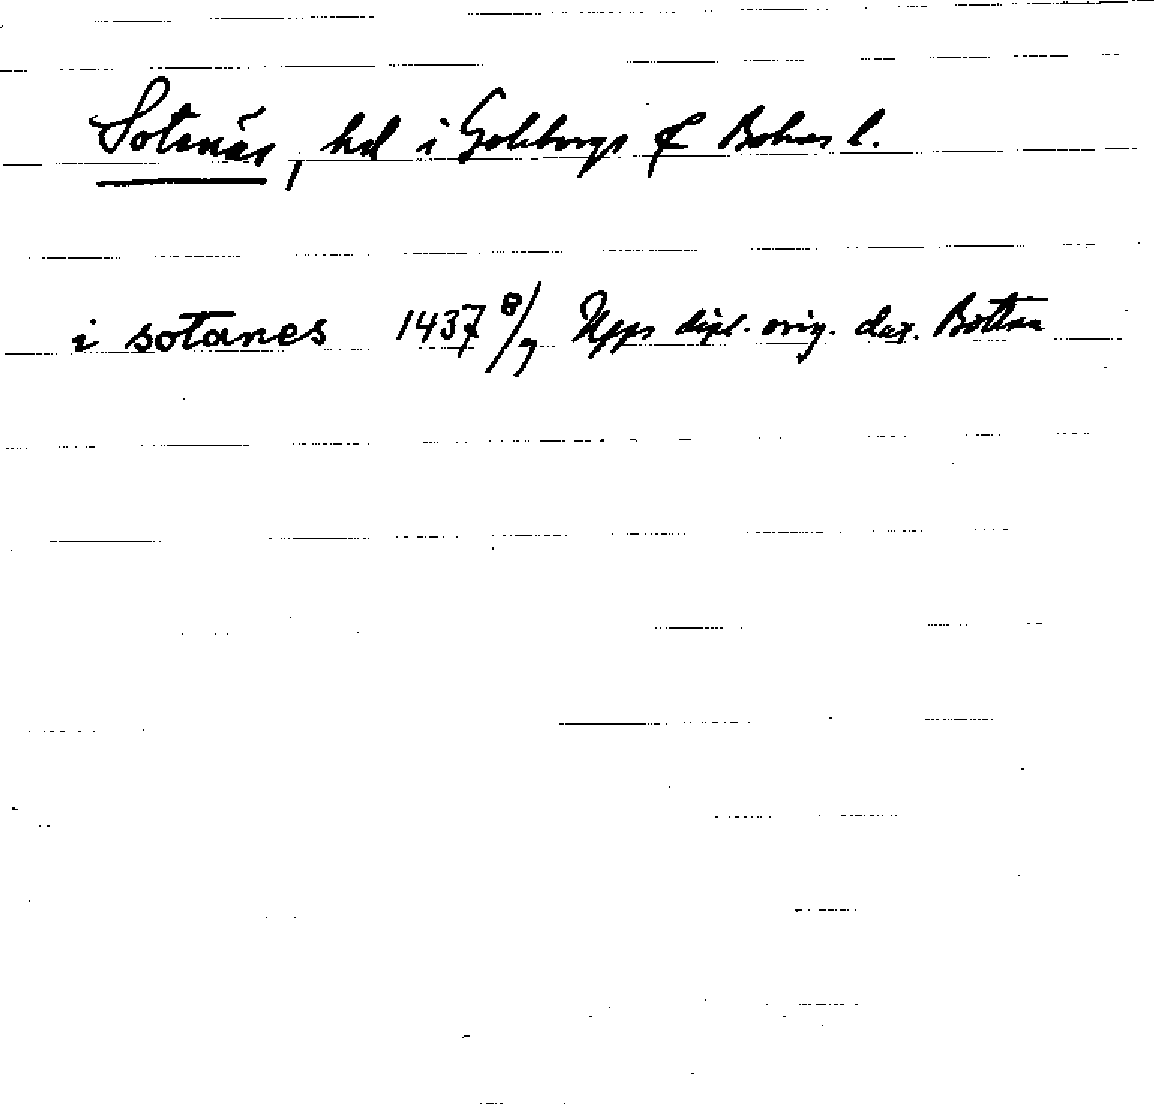 Sotenäs, hd i Göteborgs o Bohus l.
i sotanes 1437 8/9 Upps dipl. orig. dat. Bottna